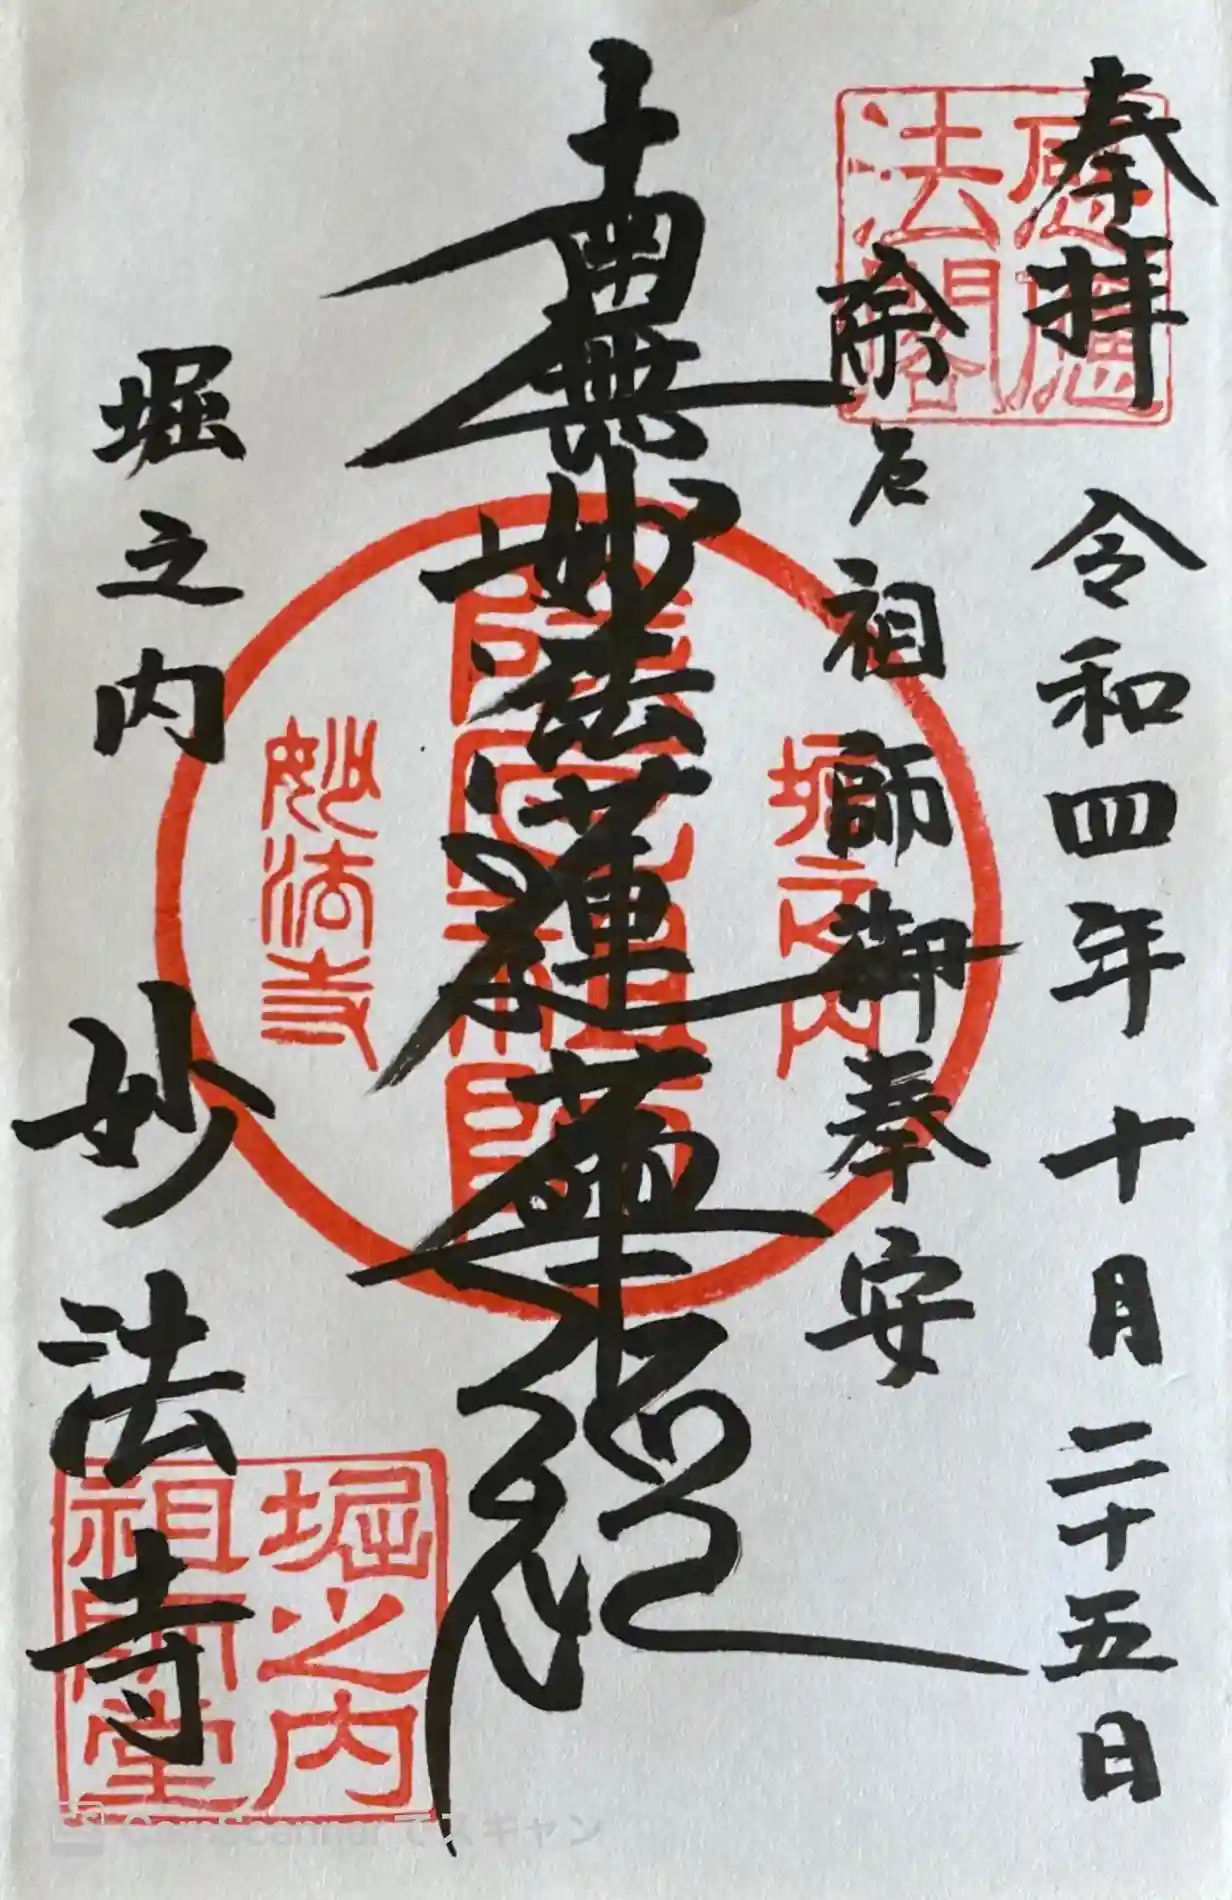 奉拝
令和四年十月二十五日
除厄祖師御奉安
南無妙法蓮華経
堀之内
妙法寺
法閣
堀之内
除厄祖師
妙法寺
堀之内
祖師堂
CamScannerでスキャン